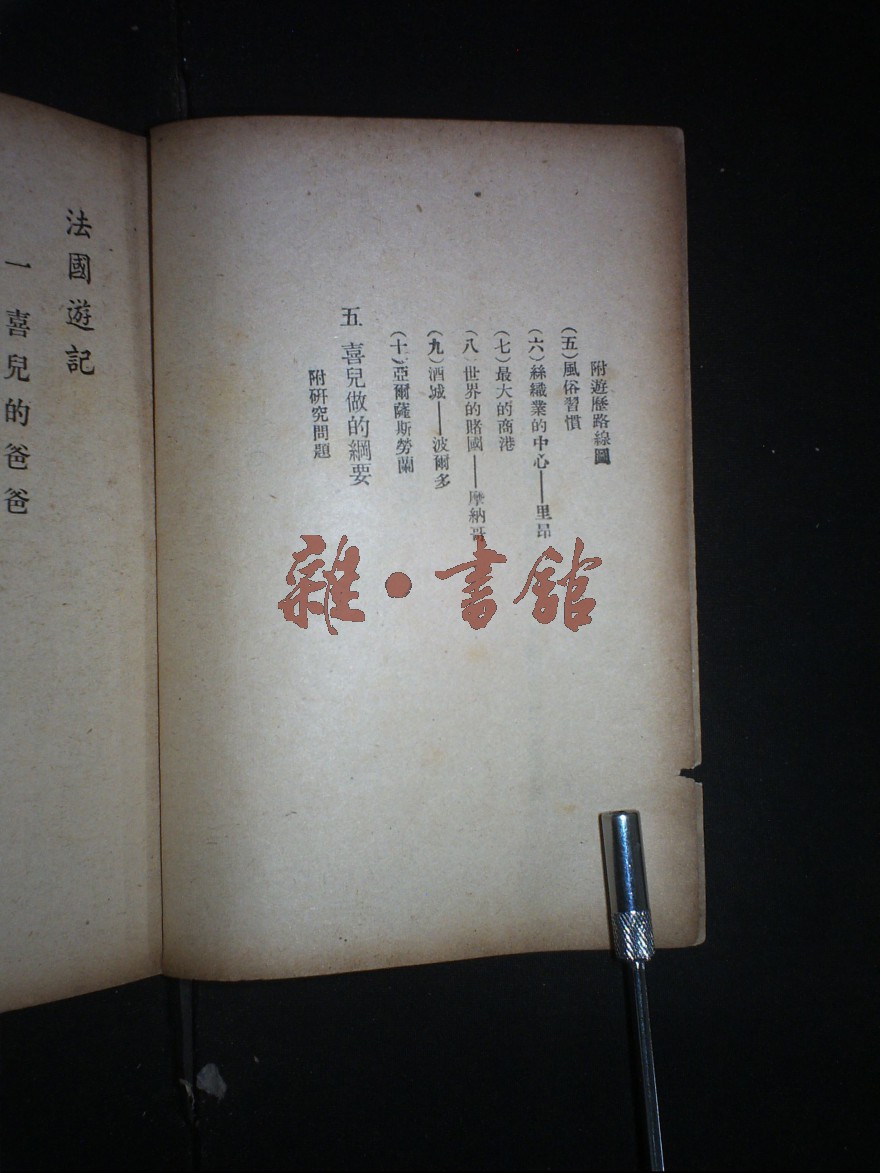 附遊歷路線圖
(五)風俗習慣
(六)絲織業的中心——里昂
(七)最大的商港
(八)世界的賭國——摩納哥
(九)酒城——波爾多
(十)亞爾薩斯勞蘭
五 喜兒做的綱要
附研究問題
法國遊記
一 喜兒的爸爸
雜·書館